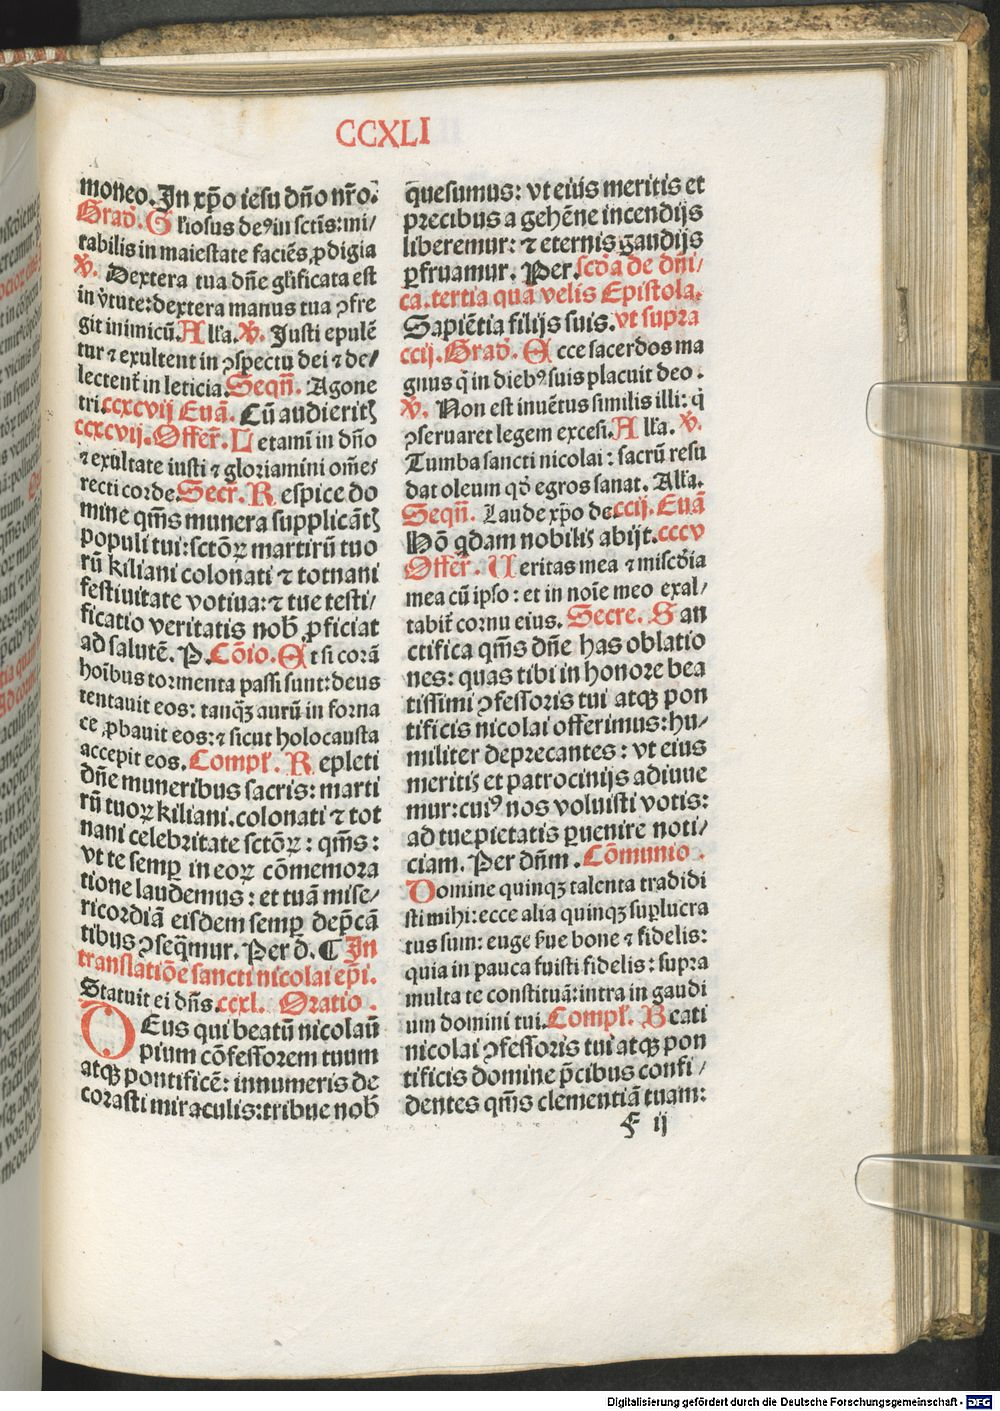 CCXLI
moneo. In xp̄o iesu dn̄o nr̄o.
Grad̄. Gl̄iosus deꝰ in sctīs: mi-
rabilis in maiestate faciēs, ꝓdigia
℣. Dextera tua dn̄e gl̄ificata est
in v̄tute: dextera manus tua ꝯfre
git inimicū. All̄a. ℣. Justi epulē
tur ⁊ exultent in ꝯspectu dei ⁊ de/
lectent̄ in leticia. Seqn̄. Agone
tri. ccxcvij Euā. Cū audieritꝭ
ccxcvij. Offer̄. Letamī in dn̄o
⁊ exultate iusti ⁊ gloriamini om̄es
recti corde. Secr̄. Respice do
mine qm̄s munera supplicātꝭ
populi tui: sctōꝝ martirū tuo
rū kiliani colonati ⁊ totnani
festiuitate votiua: ⁊ tue testi/
ficatio veritatis nob̄ ꝓficiat
ad salutē. P. Cōio. Et si corā
hoībus tormenta passi sunt: deus
tentauit eos: tanqꝫ aurū in forna
ce ꝓbauit eos: ⁊ sicut holocausta
accepit eos. Compl̄. Repleti
dn̄e muneribus sacris: marti
rū tuoꝝ kiliani. colonati ⁊ tot
nani celebritate sctōꝝ: qm̄s:
vt te semꝑ in eoꝝ cōmemora
tione laudemus: et tuā mise/
ricordiā eisdem semꝑ dep̄cā
tibus ꝯseq̄mur. Per d. ¶ In
translatiōe sancti nicolai ep̄i.
Statuit ei dn̄s. ccxl. Oratio.
DEus qui beatū nicolaū
pium cōfessorem tuum
atqꝫ pontificē: innumeris de
corasti miraculis: tribue nob̄
quesumus: vt eius meritis et
precibus a gehēne incendijs
liberemur: ⁊ eternis gandijs
ꝑfruamur. Per. scd̄a de dn̄i/
ca. tertia quā velis Epistola.
Sapiētia filijs suis. vt supra
ccij. Grad̄. Ecce sacerdos ma
gnus q̄ in diebꝰ suis placuit deo.
℣. Non est inuētus similis illi: q̄
ꝯseruaret legem excelsi. All̄a. ℣.
Tumba sancti nicolai: sacrū resu
dat oleum qd̄ egros sanat. All̄a.
Seqn̄. Laude xp̄o de. ccij. Euā
Hō qdam nobilis abijt. cccv
Offer̄. Ueritas mea ⁊ miscd̄ia
mea cū ipso: et in noīe meo exal-
tabit̄ cornu eius. Secre. San
ctifica qm̄s dn̄e has oblatio
nes: quas tibi in honore bea
tissimi ꝯfessoris tui atqꝫ pon
tificis nicolai offerimus: hu/
militer deprecantes: vt eius
meritis et patrocinijs adiuue
mur: cuiꝰ nos voluisti votis:
ad tue pietatis ꝑuenire noti/
ciam. Per dn̄m. Cōmunio.
Domine quinqꝫ talenta tradidi
sti mihi: ecce alia quinqꝫ suꝑlucra
tus sum: euge s̄ue bone ⁊ fidelis:
quia in pauca fuisti fidelis: supra
multa te constituā: intra in gaudi
um domini tui. Compl̄. Beati
nicolai ꝯfessoris tui atqꝫ pon
tificis domine p̄cibus confi/
dentes qm̄s clementiā tuam:
F ij
Digitalisierung gefördert durch die Deutsche Forschungsgemeinschaft - DFG